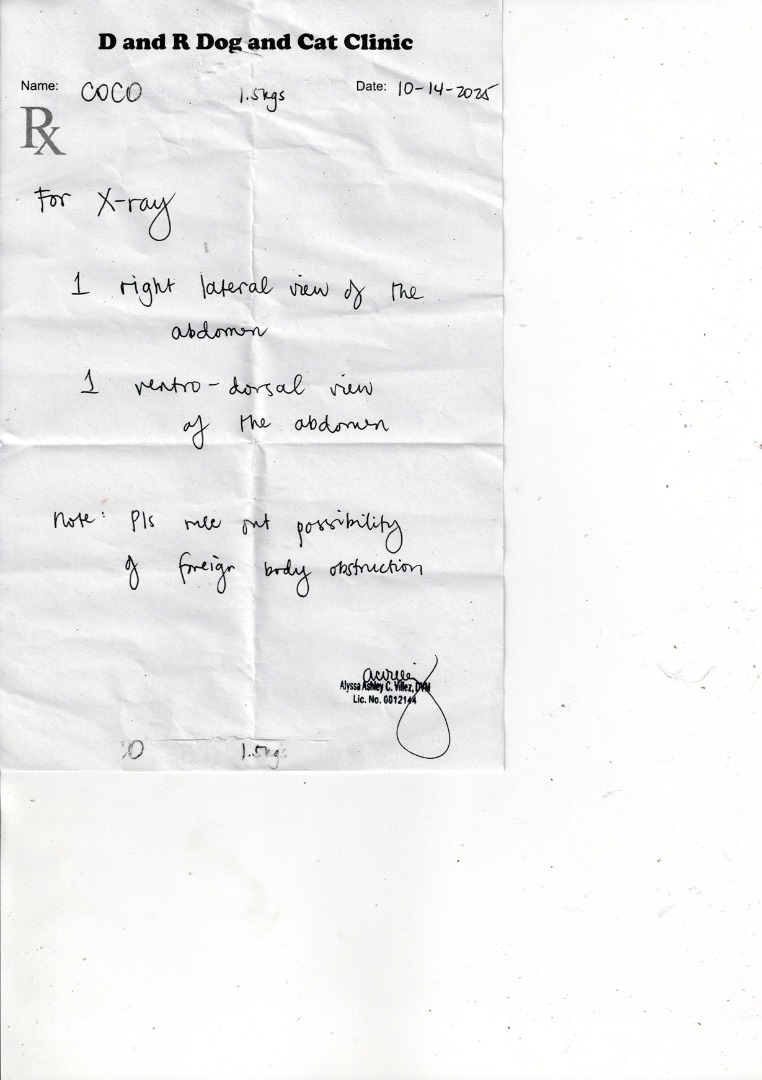 D and R Dog and Cat Clinic
Name: COCO 1.5kgs Date: 10-14-2025
Rx
For X-ray
1 right lateral view of the
abdomen
1 ventro-dorsal view
of the abdomen
Note: Pls rule out possibility
of foreign body obstruction
Alyssa Ashley C. Villez, DVM
Lic. No. 0012144
O 1.5kgs